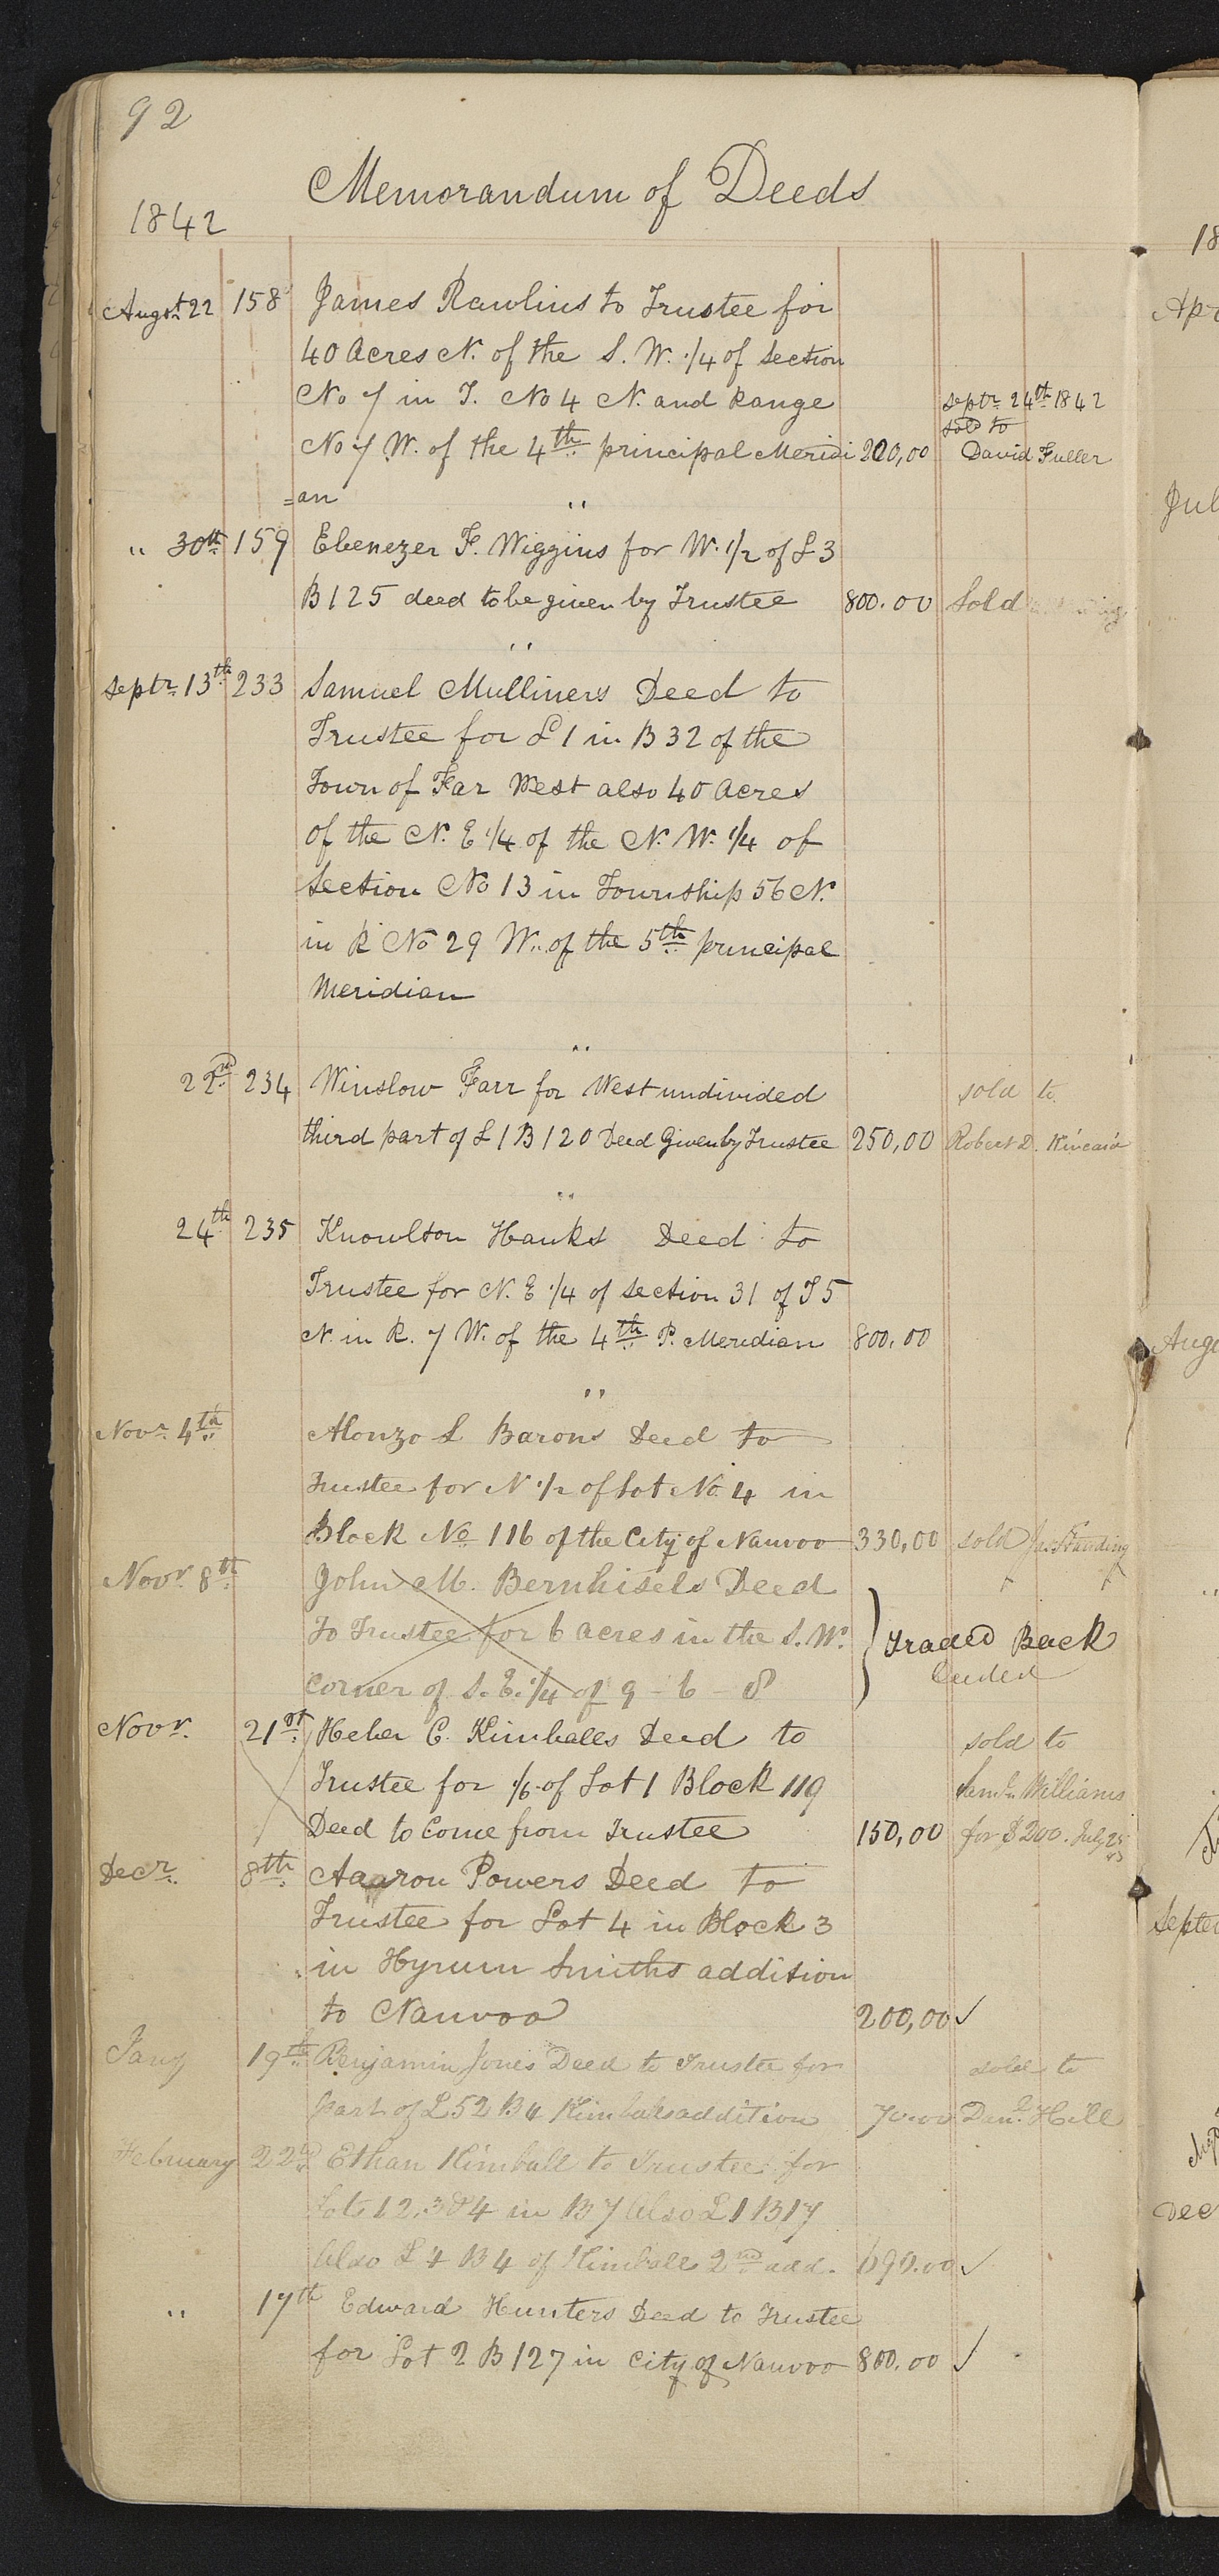 92
Memorandum of Deeds
1842
Augst. 22 158 James Rawlins to Trustee for
40 Acres N. of the S. W. 1/4 of Section
No 7 in T. No 4 N. and Range septr. 24th 1842
sold to
No 7 W. of the 4th principal Meridi 200,00 David Fuller
=an
" 30th 159 Ebenezer F. Wiggins for W. 1/2 of L 3
B 125 deed to be given by Trustee 800.00 Sold
septr. 13th 233 Samuel Mulliners Deed to
Trustee for L 1 in B 32 of the
Town of Far West also 40 Acres
of the N. E 1/4 of the N. W. 1/4 of
Section No 13 in Township 56 N.
in R No 29 W. of the 5th principal
Meridian
22nd. 234 Winslow Farr for West undivided sold to
third part of L 1 B 120 Deed Given by Trustee 250,00 Robert D. Kincaid
24th 235 Knowlton Hanks Deed to
Trustee for N. E 1/4 of Section 31 of T 5
N. in R. 7 W. of the 4th P. Meridian 800,00
Novr. 4th Alonzo L Barons Deed to
Trustee for N 1/2 of Lot No. 4 in
Block No 116 of the City of Nauvoo 330,00 sold Jas Standing
Novr. 8th John M. Bernhisels Deed
To Trustee for 6 acres in the S. W. } Traded Back
corner of S. E. 1/4 of 9 - 6 - 8
Novr. 21st. Heber C. Kimballs Deed to sold to
Trustee for 1/6 of Lot 1 Block 119 Saml. Williams
Deed to Come from Trustee 150,00 for $200. July 25
43
Decr. 8th. Aaaron Powers Deed to
Trustee for Lot 4 in Block 3
in Hyrum Smiths addition
to Nauvoo 200,00 ✓
Jany 19th. Benjamin Jones Deed to Trustee for sold to
part of L 52 B 4 Kimbals addition 70.00 Danl. Hill
February 22d. Ethan Kimball to Trustee for
Lots 1 2, 3 & 4 in B 7 Also L 1 B 17
Also L 4 B 4 of Kimball 2nd add. 690.00 ✓
" 17th Edward Hunters Deed to Trustee
for Lot 2 B 127 in City of Nauvoo 800.00 ✓